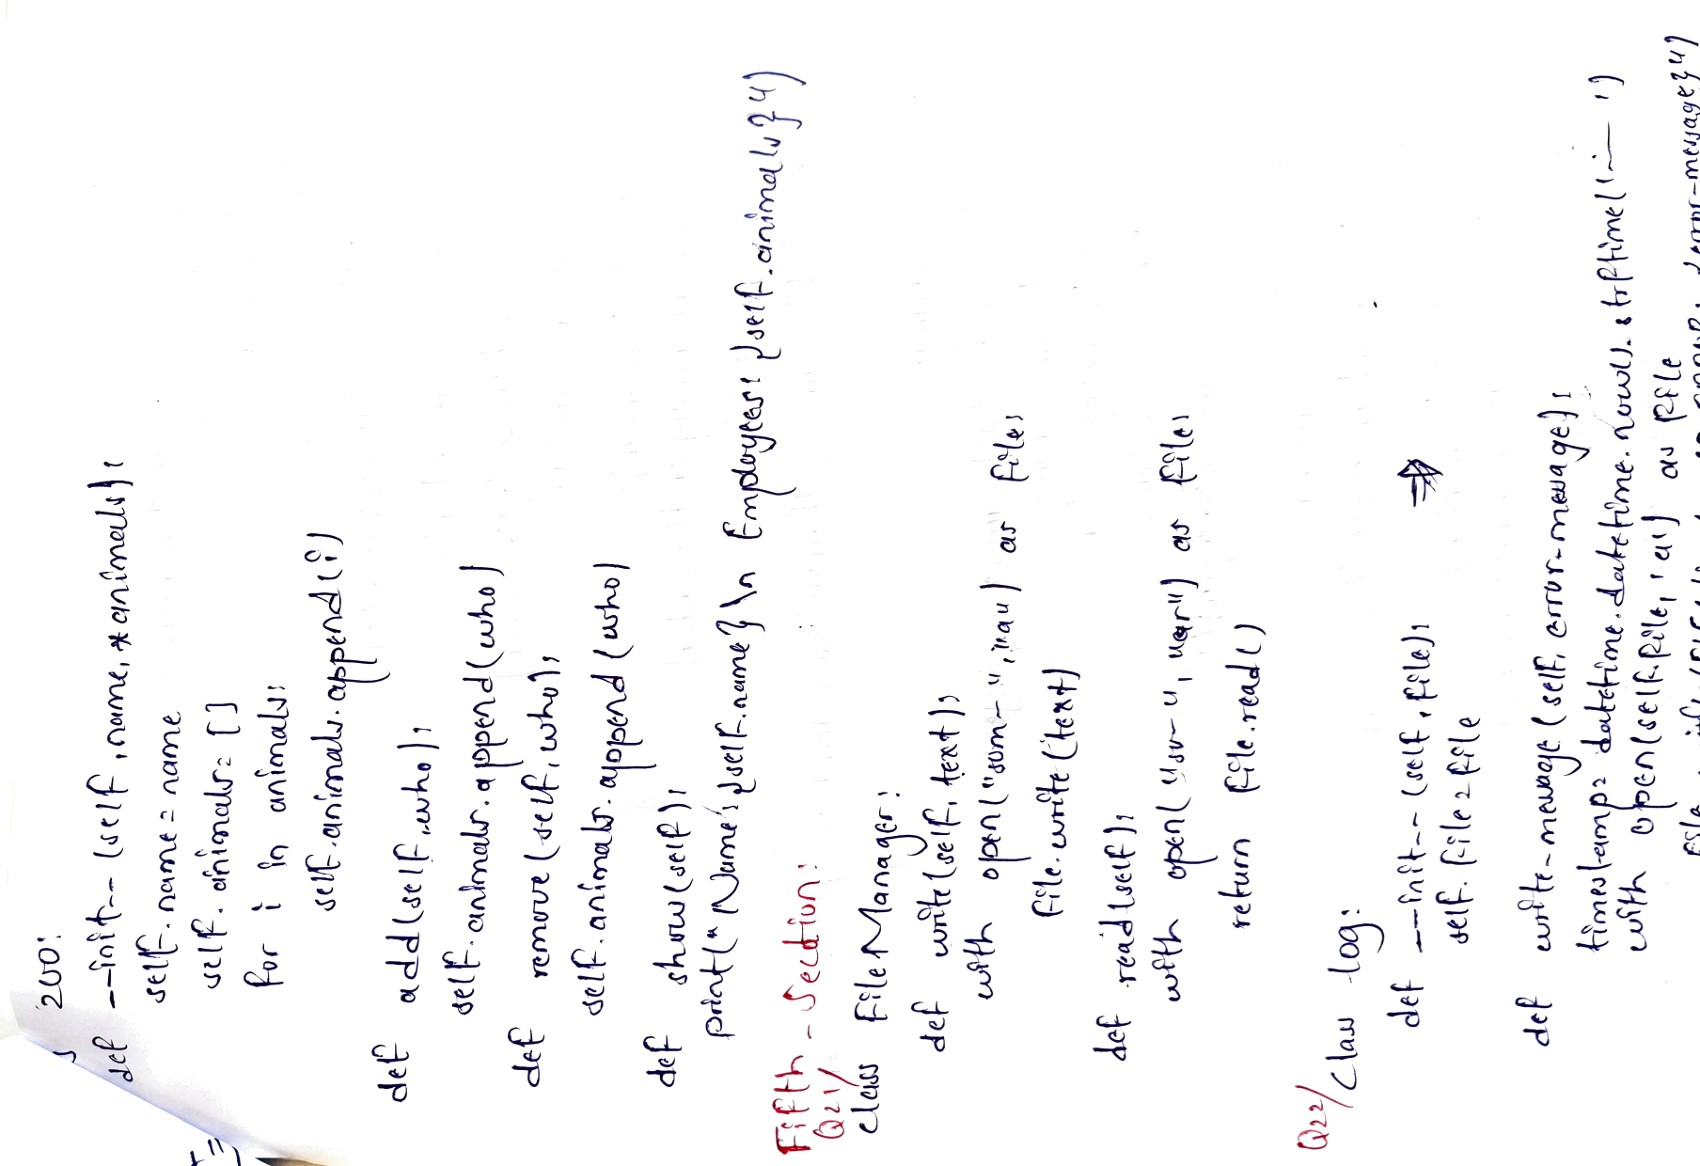 zoo:
def __init__(self, name, *animals):
self.name = name
self.animals = []
for i in animals:
self.animals.append(i)
def add(self, who):
self.animals.append(who)
def remove(self, who):
self.animals.append(who)
def show(self):
print("Name: {self.name} \n Employees: {self.animals}")
Fifth-Section:
Q21/
class FileManager:
def write(self, text):
with open(" ", "a") as file:
file.write(text)
def read(self):
with open(" ", "r") as file:
return file.read()
Q22/ Class log:
def __init__(self, file):
self.file = file
def write-message(self, error-message):
timestamp = datetime.datetime.now().strftime('-- ')
with open(self.file, 'a') as file
error-message}")